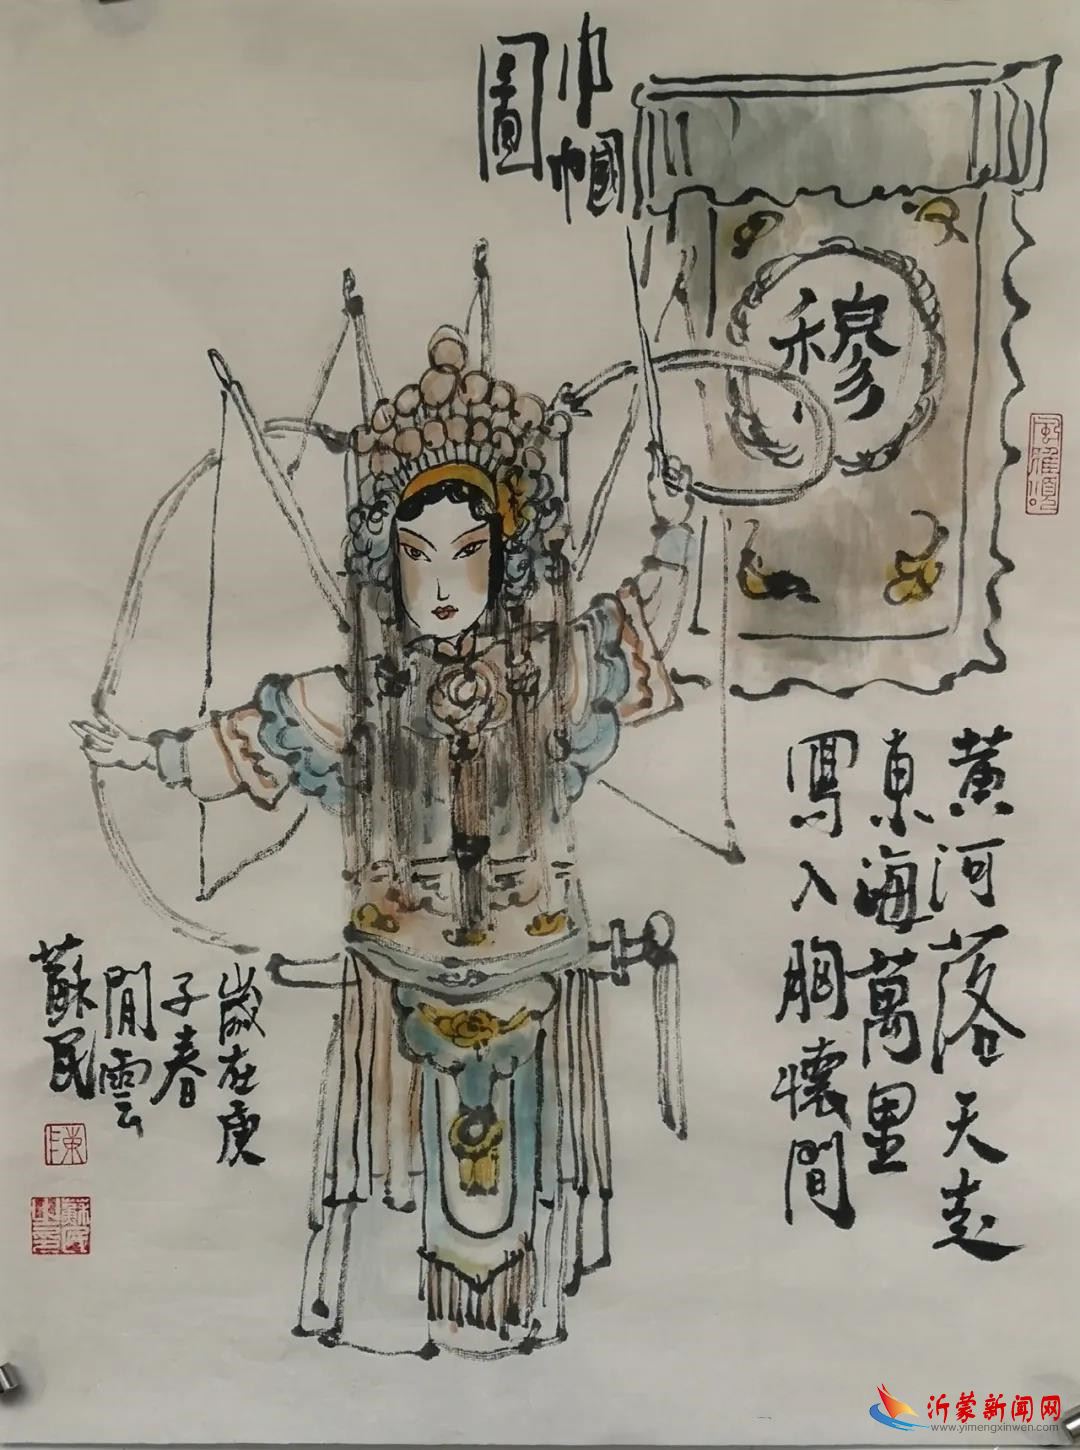 巾
幗
圖
穆
風雅頌
黄河落天走
東海萬里
寫入胸懷間
歲在庚
子春
閒雲
蘇民
沂蒙新闻网
www.yimengxinwen.com